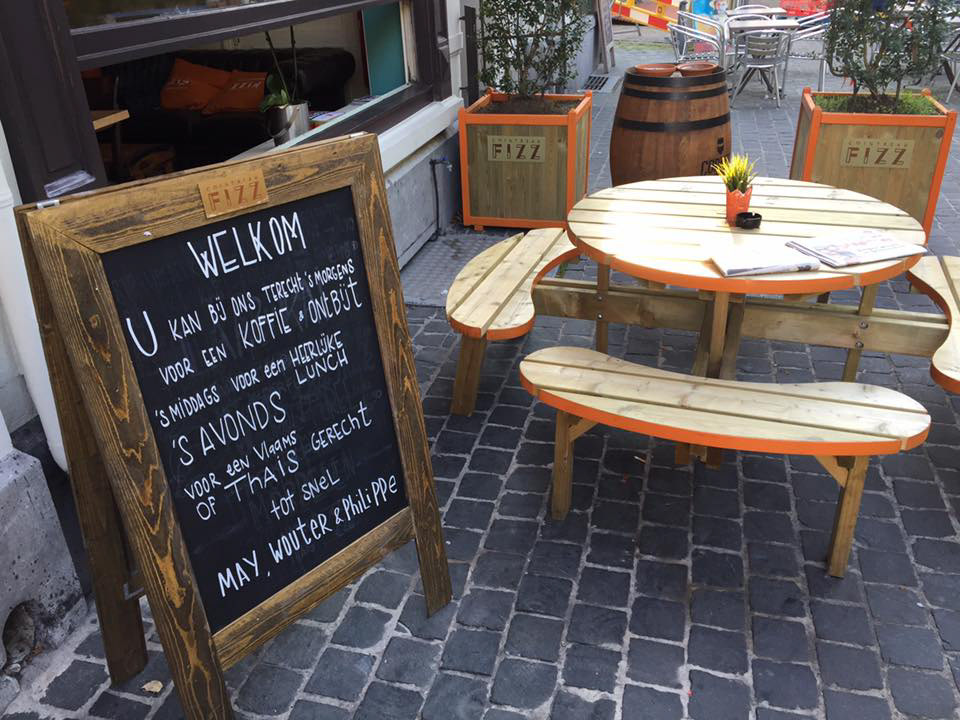 COINTREAU
FIZZ
WELKOM
U KAN BIJ ONS TERECHT 'S MORGENS
VOOR EEN KOFFIE & ONTBIJT
'S MIDDAGS VOOR EEN HEERLIJKE
LUNCH
'S AVONDS
VOOR EEN VLAAMS GERECHT
OF THAIS
tot SNEL
MAY, WOUTER & PHILIPPE
COINTREAU
FIZZ
COINTREAU
FIZZ
FIZZ